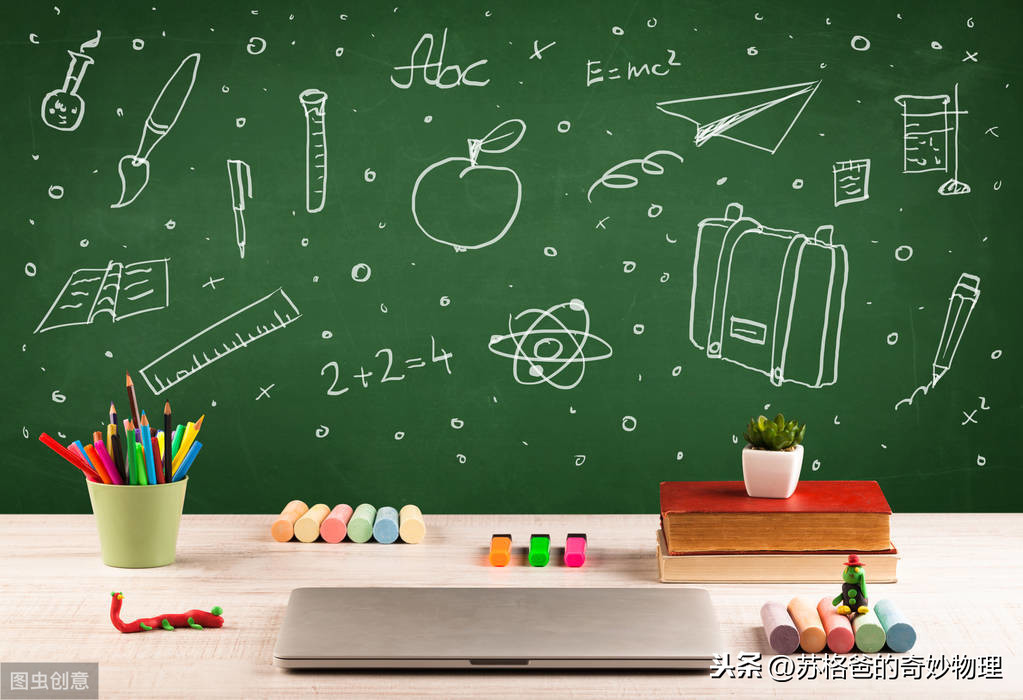 Abc
E=mc²
2+2=4
x²
图虫创意
头条 @苏格爸的奇妙物理